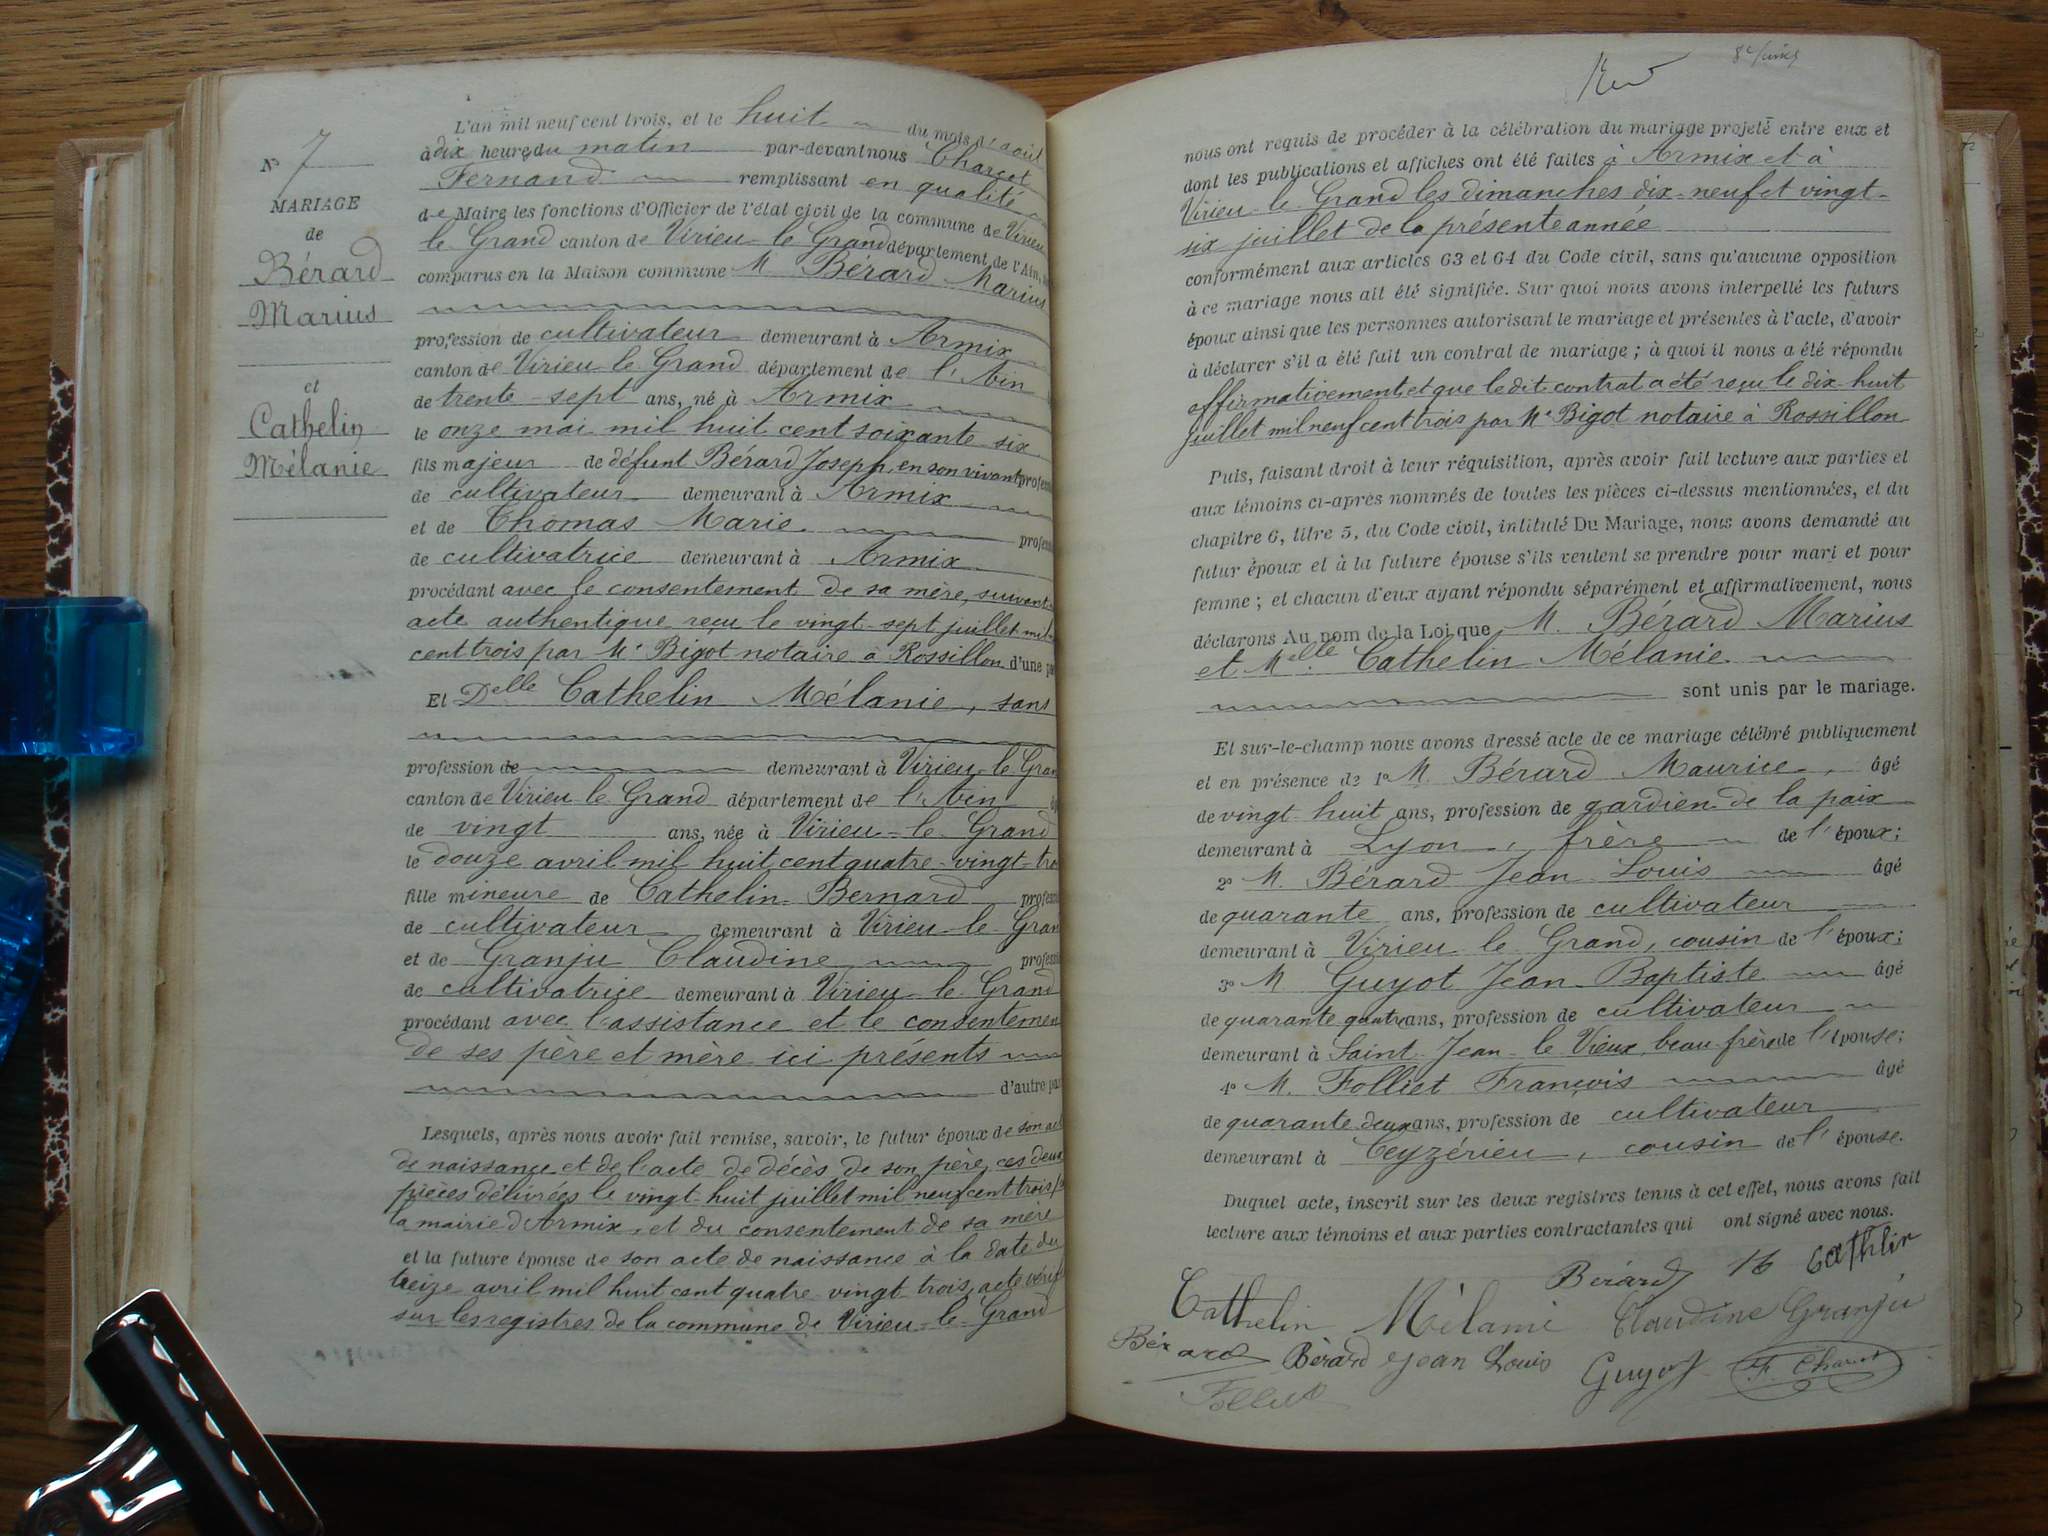 N° 7
MARIAGE
de
Bérard
Marius
et
Cathelin
Mélanie
L'an mil neuf cent trois, et le huit du mois d'août
à dix heures du matin par-devant nous Charcot
Fernand remplissant en qualité
de Maire les fonctions d'Officier de l'état civil de la commune de Virieu
le Grand canton de Virieu-le Grand département de l'Ain,
comparus en la Maison commune M Bérard Marius
profession de cultivateur demeurant à Armix
canton de Virieu le Grand département de l'Ain
de trente-sept ans, né à Armix
le onze mai mil huit cent soixante six
fils majeur de défunt Bérard Joseph, en son vivant profess
de cultivateur demeurant à Armix
et de Thomas Marie profess
de cultivatrice demeurant à Armix
procédant avec le consentement de sa mère, suivant
acte authentique reçu le vingt-sept juillet mil
cent trois par Me Bigot notaire à Rossillon d'une pa
Et Delle Cathelin Mélanie, sans
profession de demeurant à Virieu-le Gran
canton de Virieu le Grand département de l'Ain
de vingt ans, née à Virieu-le-Grand
le douze avril mil huit cent quatre-vingt-tro
fille mineure de Cathelin Bernard profess
de cultivateur demeurant à Virieu-le-Gran
et de Granju Claudine profess
de cultivatrice demeurant à Virieu-le-Grand
procédant avec l'assistance et le consentemen
de ses père et mère ici présents
d'autre par
Lesquels, après nous avoir fait remise, savoir, le futur époux de son act
de naissance et de l'acte de décès de son père, ces deux
pièces délivrées le vingt huit juillet mil neuf cent trois
la mairie d'Armix, et du consentement de sa mère
et la future épouse de son acte de naissance à la date du
treize avril mil huit cent quatre-vingt trois, acte vérif
sur les registres de la commune de Virieu-le-Grand
nous ont requis de procéder à la célébration du mariage projeté entre eux et
dont les publications et affiches ont été faites à Armix et à
Virieu-le Grand les dimanches dix-neuf et vingt-
six juillet de la présente année
conformément aux articles 63 et 64 du Code civil, sans qu'aucune opposition
à ce mariage nous ait été signifiée. Sur quoi nous avons interpellé les futurs
époux ainsi que les personnes autorisant le mariage et présentes à l'acte, d'avoir
à déclarer s'il a été fait un contrat de mariage ; à quoi il nous a été répondu
affirmativement et que le dit contrat a été reçu le dix-huit
juillet mil neuf cent trois par Me Bigot notaire à Rossillon
Puis, faisant droit à leur réquisition, après avoir fait lecture aux parties et
aux témoins ci-après nommés de toutes les pièces ci-dessus mentionnées, et du
chapitre 6, titre 5, du Code civil, intitulé Du Mariage, nous avons demandé au
futur époux et à la future épouse s'ils veulent se prendre pour mari et pour
femme ; et chacun d'eux ayant répondu séparément et affirmativement, nous
déclarons Au nom de la Loi que M. Bérard Marius
et Melle Cathelin Mélanie
sont unis par le mariage.
Et sur-le-champ nous avons dressé acte de ce mariage célébré publiquement
et en présence de 1° M. Bérard Maurice, âgé
de vingt-huit ans, profession de gardien de la paix
demeurant à Lyon, frère de l'époux ;
2° M. Bérard Jean Louis âgé
de quarante ans, profession de cultivateur
demeurant à Virieu le Grand, cousin de l'époux ;
3° M Guyot Jean-Baptiste âgé
de quarante quatre ans, profession de cultivateur
demeurant à Saint-Jean-le Vieux, beau-frère de l'épouse ;
4° M. Folliet François âgé
de quarante deux ans, profession de cultivateur
demeurant à Ceyzérieu, cousin de l'épouse.
Duquel acte, inscrit sur les deux registres tenus à cet effet, nous avons fait
lecture aux témoins et aux parties contractantes qui ont signé avec nous.
Bérard Cathlin
Cathelin Mélanie Claudine Granju
Bérard Bérard Jean Louis Guyot F. Charcot
Folliet